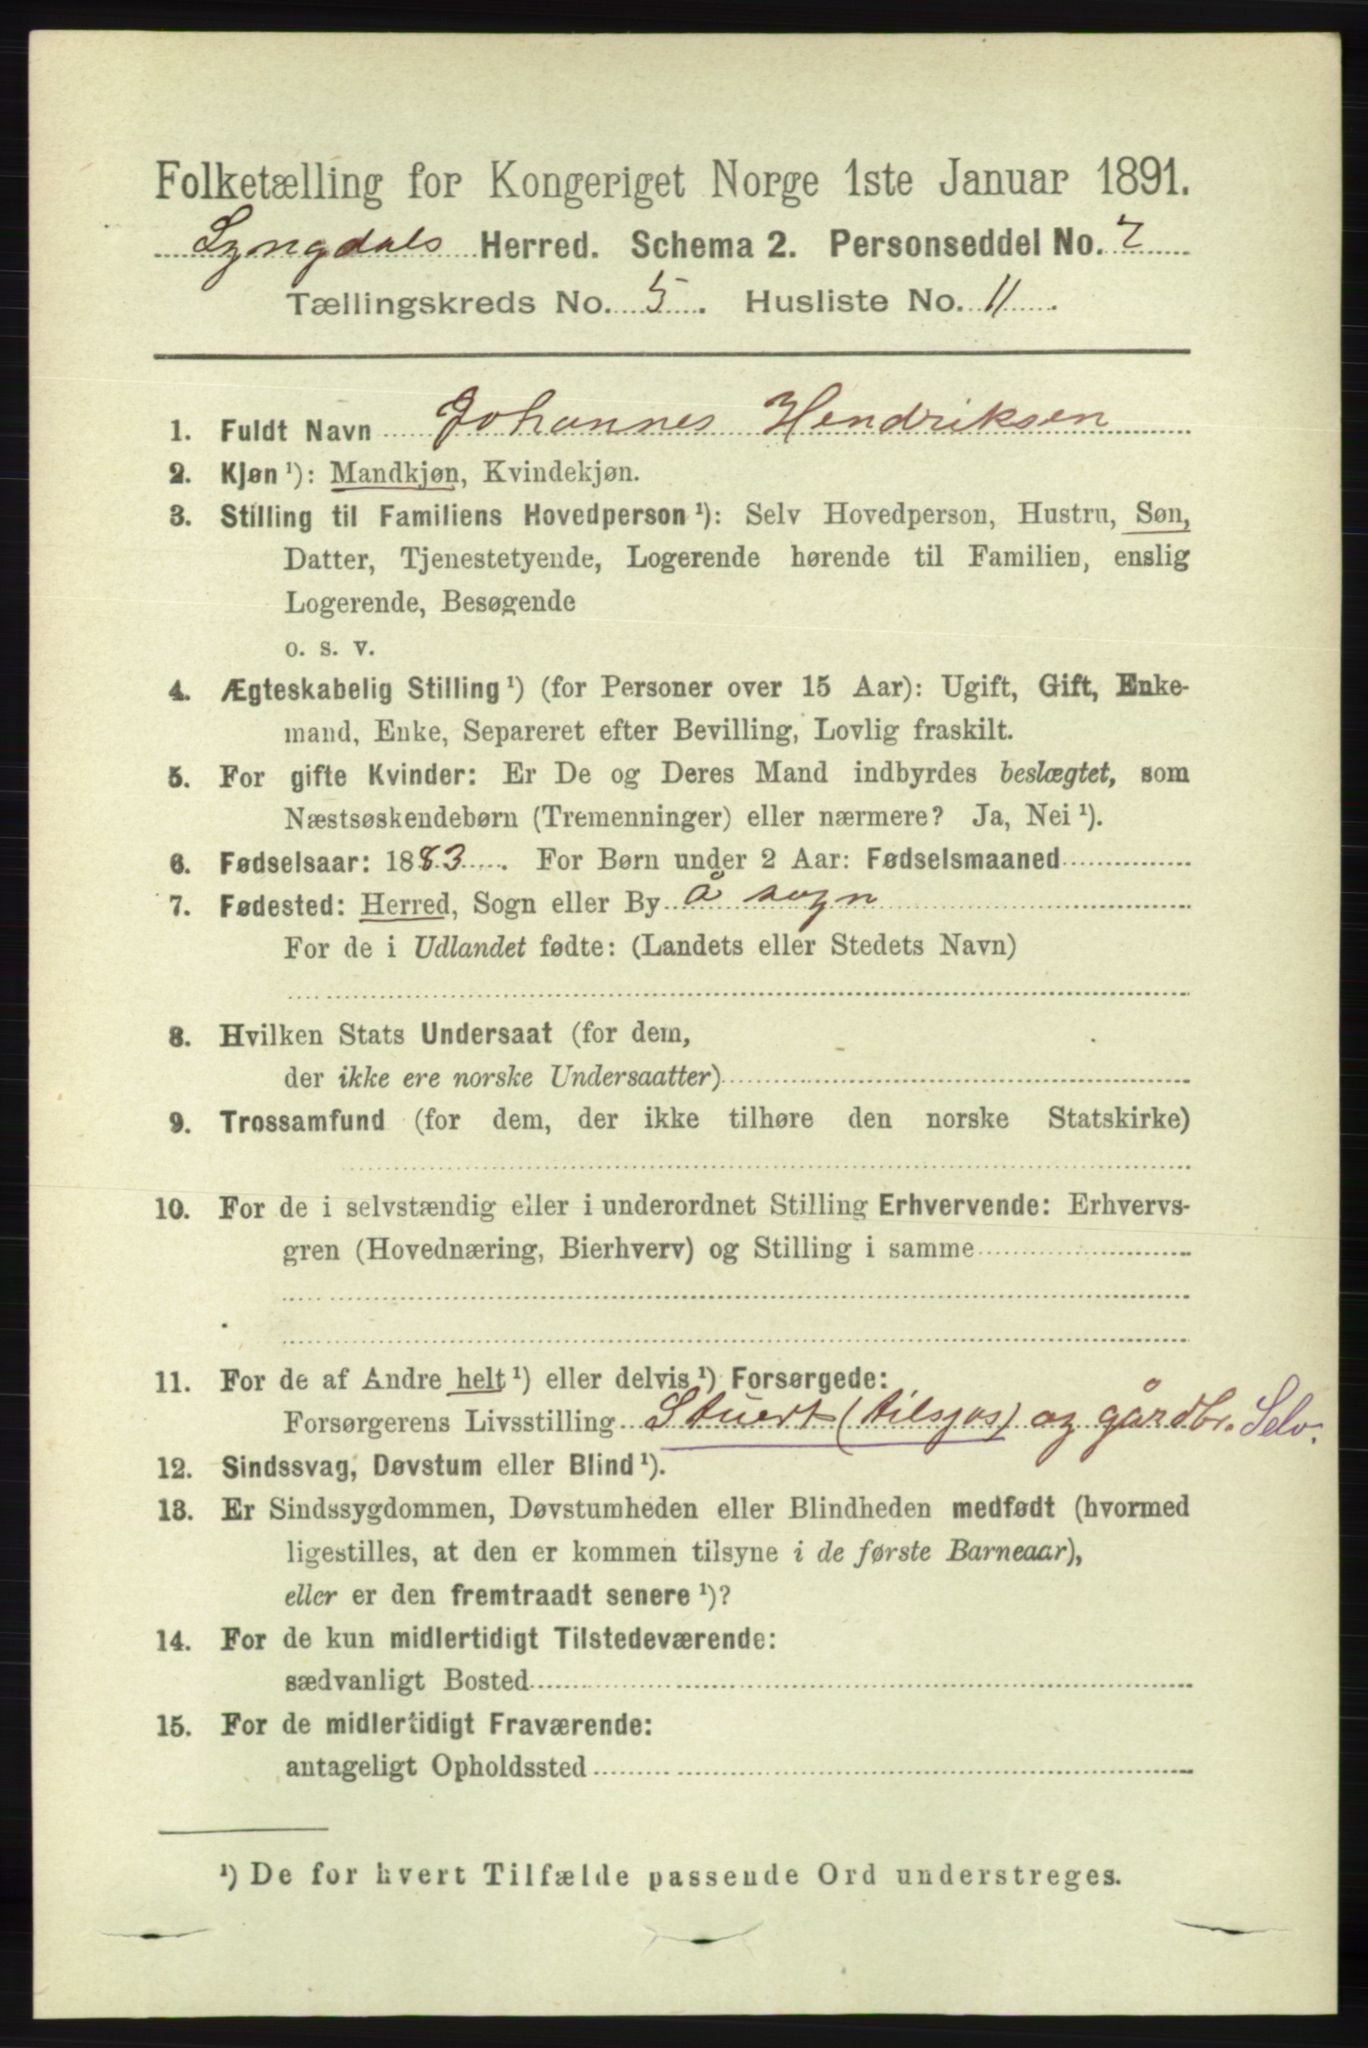 Folketælling for Kongeriget Norge 1ste Januar 1891.
Lyngdals Herred. Schema 2. Personseddel No. 7
Tællingskreds No. 5. Husliste No. 11.
1. Fuldt Navn Johannes Hendriksen
2. Kjøn ¹): Mandkjøn, Kvindekjøn.
3. Stilling til Familiens Hovedperson ¹): Selv Hovedperson, Hustru, Søn,
Datter, Tjenestetyende, Logerende hørende til Familien, enslig
Logerende, Besøgende
o. s. v.
4. Ægteskabelig Stilling ¹) (for Personer over 15 Aar): Ugift, Gift, Enke-
mand, Enke, Separeret efter Bevilling, Lovlig fraskilt.
5. For gifte Kvinder: Er De og Deres Mand indbyrdes beslægtet, som
Næstsøskendebørn (Tremenninger) eller nærmere? Ja, Nei ¹).
6. Fødselsaar: 1883. For Børn under 2 Aar: Fødselsmaaned
7. Fødested: Herred, Sogn eller By Å sogn
For de i Udlandet fødte: (Landets eller Stedets Navn)
8. Hvilken Stats Undersaat (for dem,
der ikke ere norske Undersaatter)
9. Trossamfund (for dem, der ikke tilhøre den norske Statskirke)
10. For de i selvstændig eller i underordnet Stilling Erhvervende: Erhvervs-
gren (Hovednæring, Bierhverv) og Stilling i samme
11. For de af Andre helt ¹) eller delvis ¹) Forsørgede:
Forsørgerens Livsstilling Stuert (tilsjøs) og gårdbr. Selv.
12. Sindssvag, Døvstum eller Blind ¹).
13. Er Sindssygdommen, Døvstumheden eller Blindheden medfødt (hvormed
ligestilles, at den er kommen tilsyne i de første Barneaar),
eller er den fremtraadt senere ¹)?
14. For de kun midlertidigt Tilstedeværende:
sædvanligt Bosted
15. For de midlertidigt Fraværende:
antageligt Opholdssted
¹) De for hvert Tilfælde passende Ord understreges.